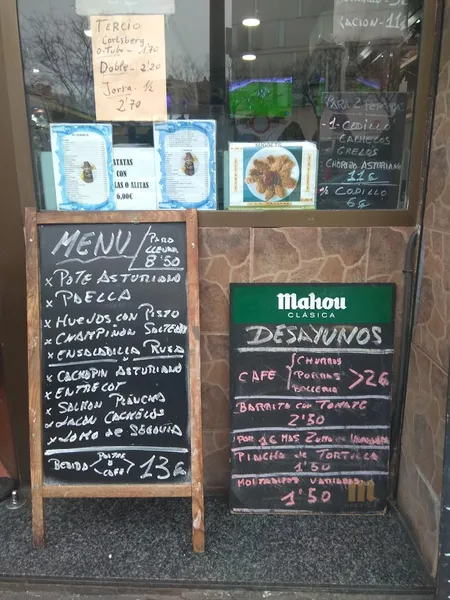 TERCIO
Carlsberg
o Tubo - 1'70
Doble - 2'20
Jarra - ½
2'70
PARA 2 PERSONAS
-1- CODILLO
CACHELOS
GRELOS
CHORIZO ASTURIANO
11€
½ CODILLO
6€
ATATAS
CON
LAS O ALITAS
6,00€
MENU / PARA
LLEVAR
8'50
x POTE ASTURIANO
x PAELLA
x HUEVOS CON PISTO
x CHAMPIÑON SALTEADO
x ENSALADILLA RUSA
x CACHOPIN ASTURIANO
x ENTRECOT
x SALMON PLANCHA
x LACON CACHELOS
x LOMO de SEGOVIA
BEBIDA POSTRE o CAFE 13€
Mahou
CLÁSICA
DESAYUNOS
CHURROS
CAFE PORRAS >2€
BOLLERIA
BARRITA CON TOMATE
2'50
POR 1€ MAS ZUMO DE NARANJA
PINCHO de TORTILLA
1'50
MONTADITOS VARIADOS
1'50